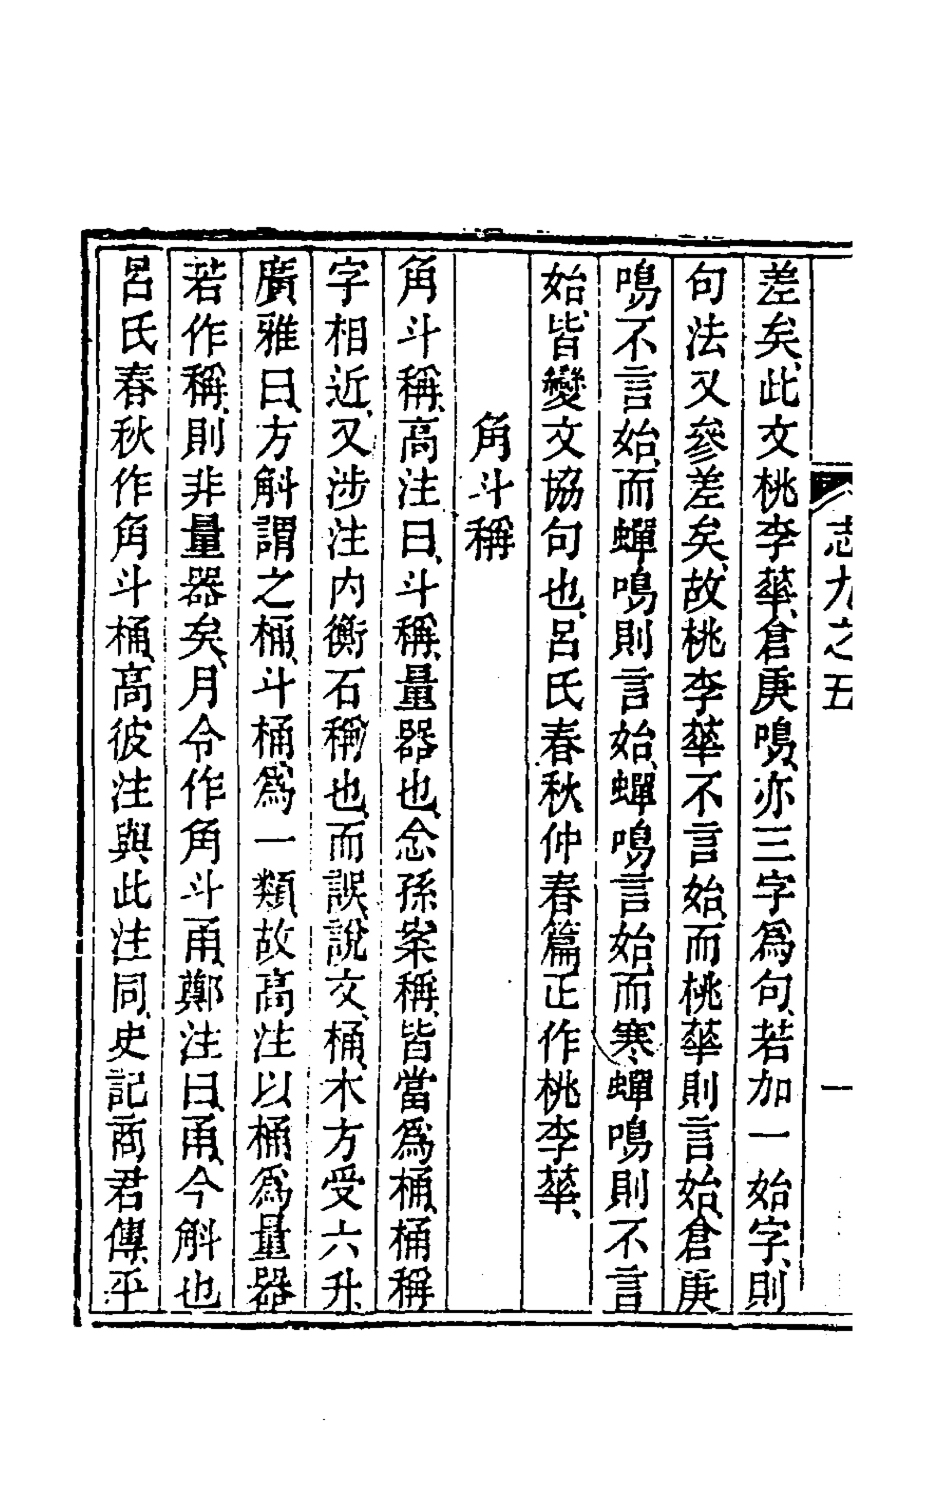 志九之五
一
差矣、此文桃李華、倉庚鳴、亦三字爲句、若加一始字、則
句法又參差矣、故桃李華不言始、而桃華則言始、倉庚
鳴不言始、而蟬鳴則言始、蟬鳴言始、而寒蟬鳴則不言
始、皆變文協句也、呂氏春秋仲春篇正作桃李華、
角斗稱
角斗稱、高注曰、斗稱、量器也、念孫案、稱、皆當爲桶、桶稱
字相近、又涉注內衡石稱也、而誤、說文、桶、木方受六升、
廣雅曰、方斛謂之桶、斗桶爲一類、故高注以桶爲量器
若作稱、則非量器矣、月令作角斗甬、鄭注曰、甬、今斛也
呂氏春秋作角斗桶、高彼注與此注同、史記商君傳、平